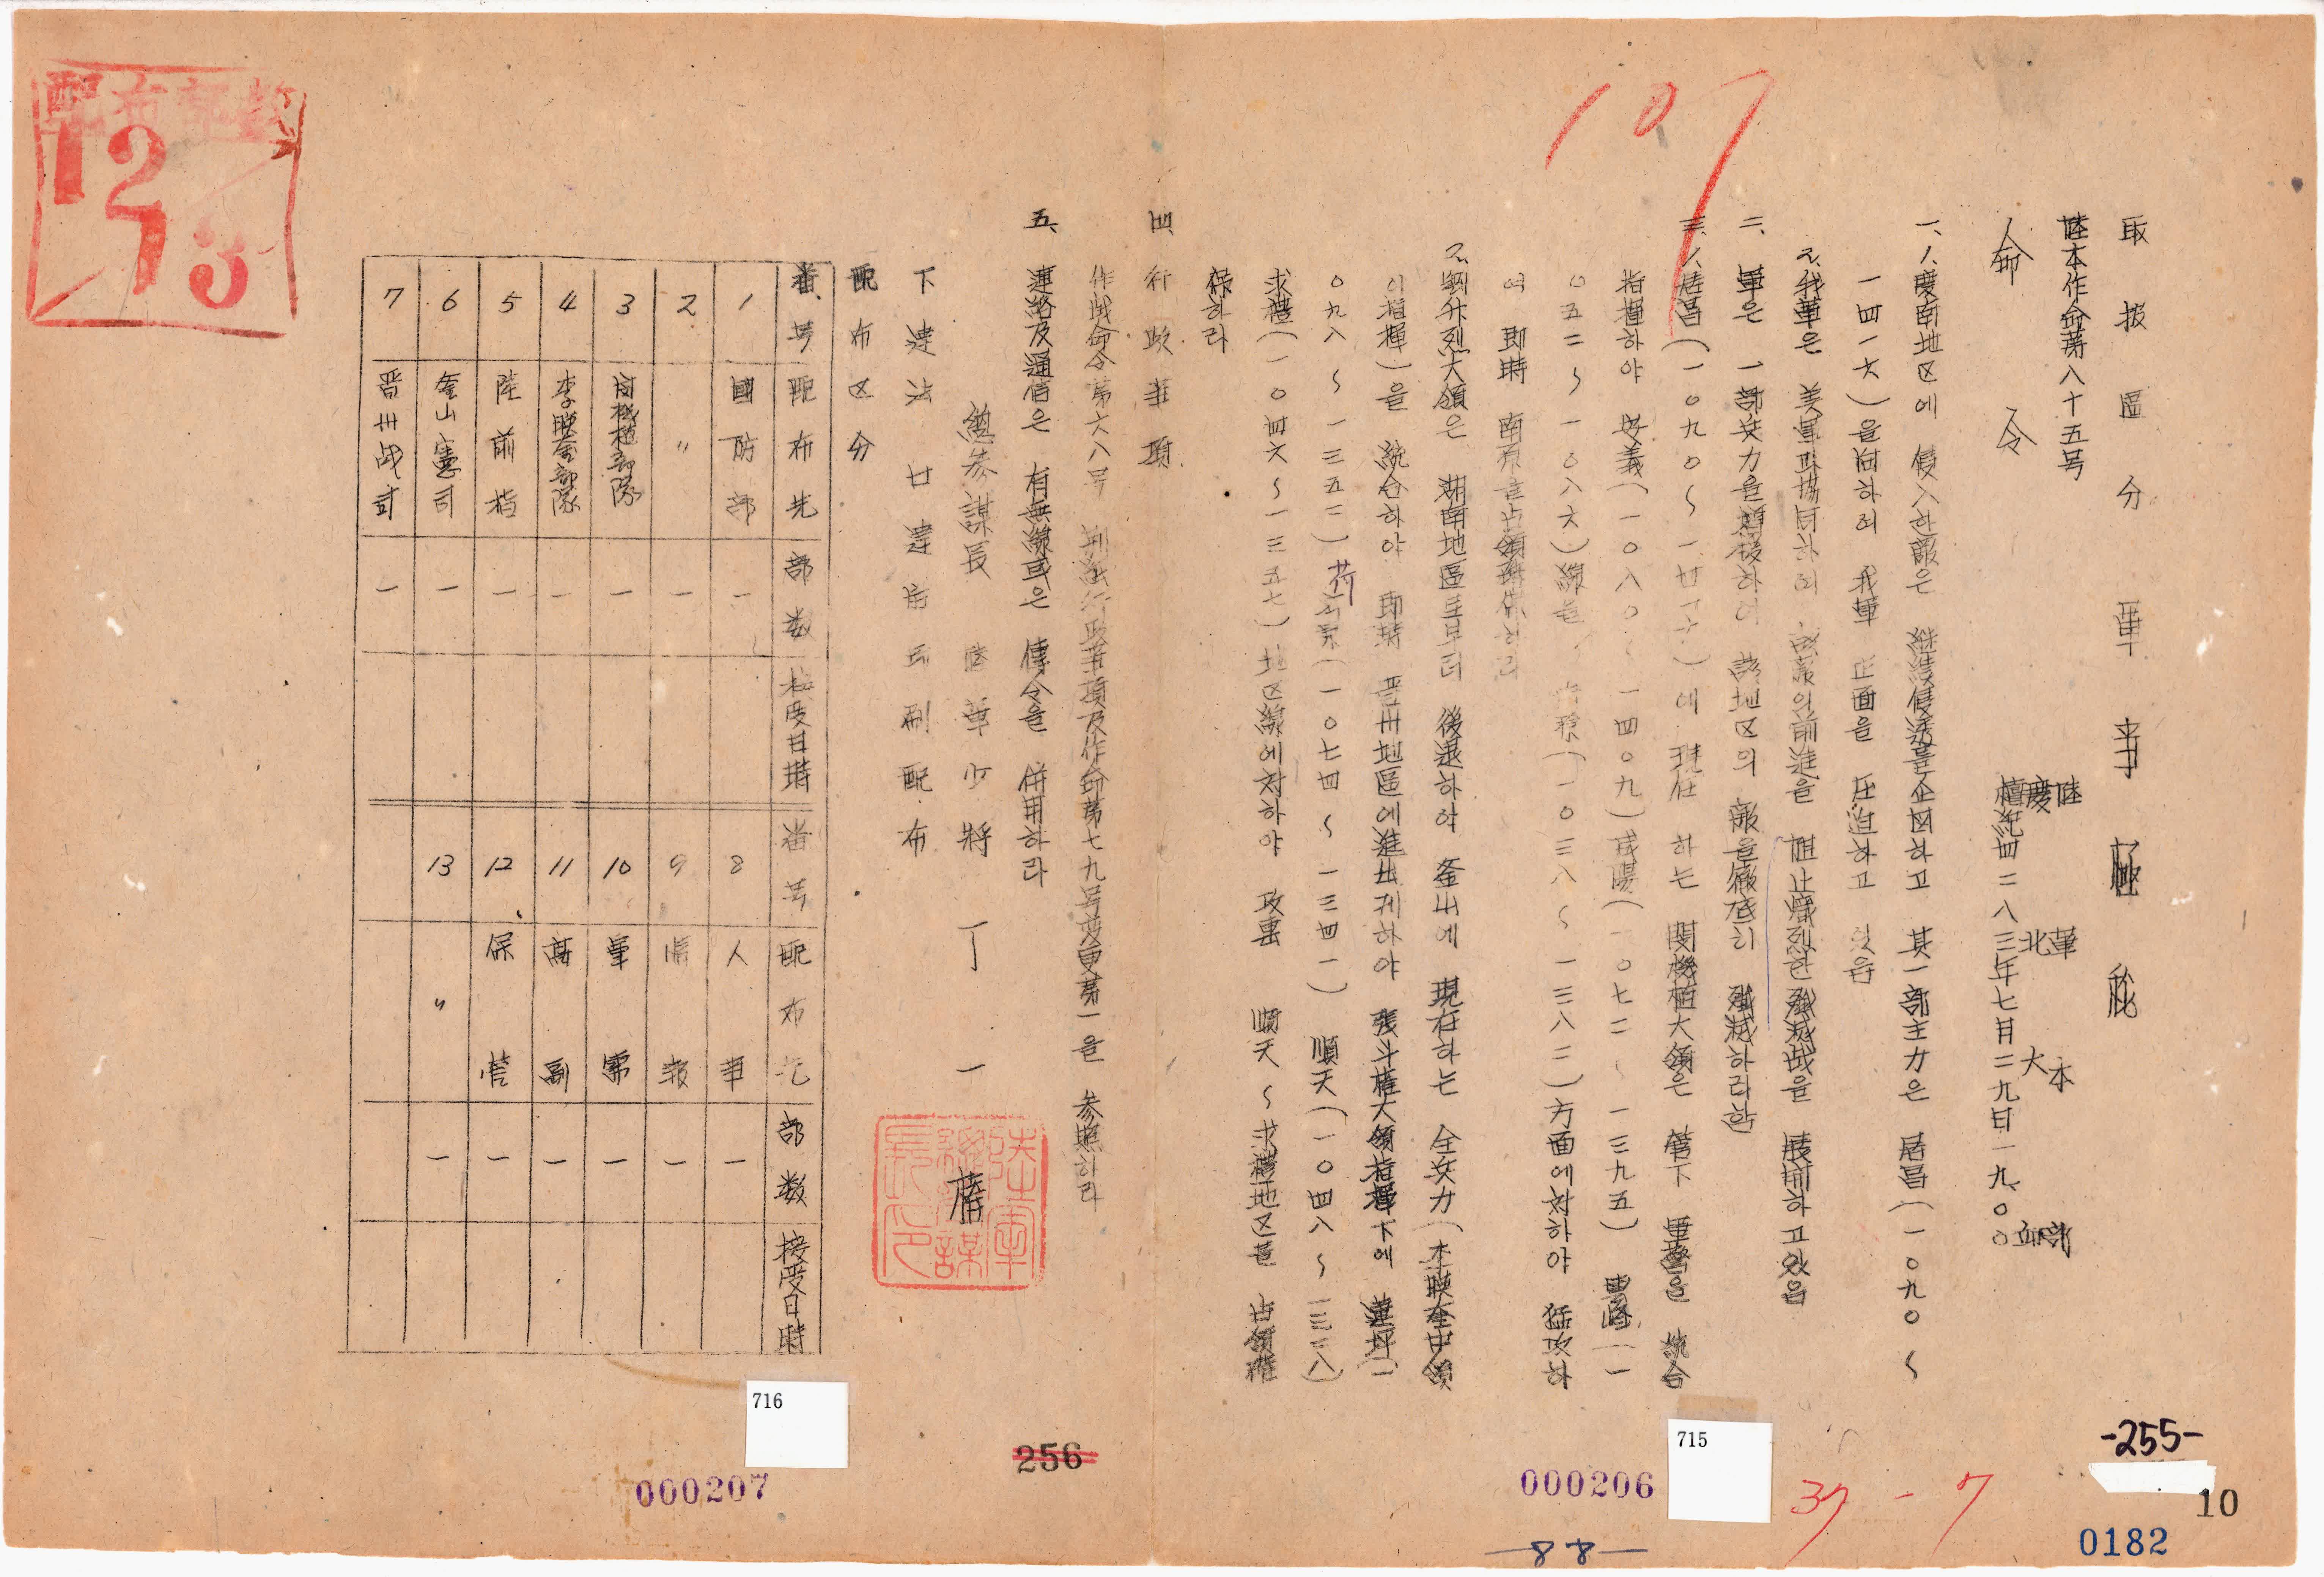 取扱區分 軍事極秘
陸本作命第八十五号
陸軍本部
慶北大邱
檀紀四二八三年七月二九日一九、〇〇
命令
一、1、慶南地区에 侵入한敵은 継続侵透를企図하고 其一部主力은 居昌(一〇九〇~
一四一六)을向하며 我軍 正面을 圧迫하고 있음
2、我軍은 美軍과協同하며 敵의前進을 阻止熾烈한殲滅战을 展開하고있음
二、軍은 一部兵力을 하여 該地区의 敵을徹底히 殲滅하라함
三、1、居昌(一〇九〇~一四一六)에 現在 하는 閔機植大領은 管下 軍警을 統合
指揮하야 安義(一〇八〇~一四〇九)咸陽(一〇七二~一三九五) 雲峰(一
〇五二~一〇八六)線을 (一〇三八~一三八二)方面에対하야 猛攻하
여 即時 南原을占領確保하라
2、劉升烈大領은 湖南地區로부터 後退하야 釜山에 現在하는 全兵力(李暎奎中領
이指揮)을 統合하야 即時 晋州地區에進出케하야 張斗權大領指揮下에 (一
〇九八~一三五二)荷 (一〇七四~一三四一) 順天(一〇四八~一三三八)
求禮(一〇四六~一三五七)地区線에対하야 攻 順天~求禮地区를 占領確
保하라
四、行政事項
作战命令第六八号 別紙行政事項及作命第七九号 変更第一을 参照하라
五、連絡及通信은 有無線或은 傳令을 併用하라
總参謀長 陸軍少將 丁一權
陸軍總参謀長印
下達法 印刷配布
配布区分
番号 配布先 部数 接受日時 番号 配布先 部数 接受日時
1 國防部 一 8 人事 一
2 〃 一 9 情報 一
3 閔機植部隊 一 10 軍需 一
4 李暎奎部隊 一 11 高副 一
5 陸前指 一 12 保管 一
6 釜山憲司 一 13 〃 一
7 晋州战司 一
107
127
3
715
716
000206
000207
256
-255-
10
0182
37-7
-88-